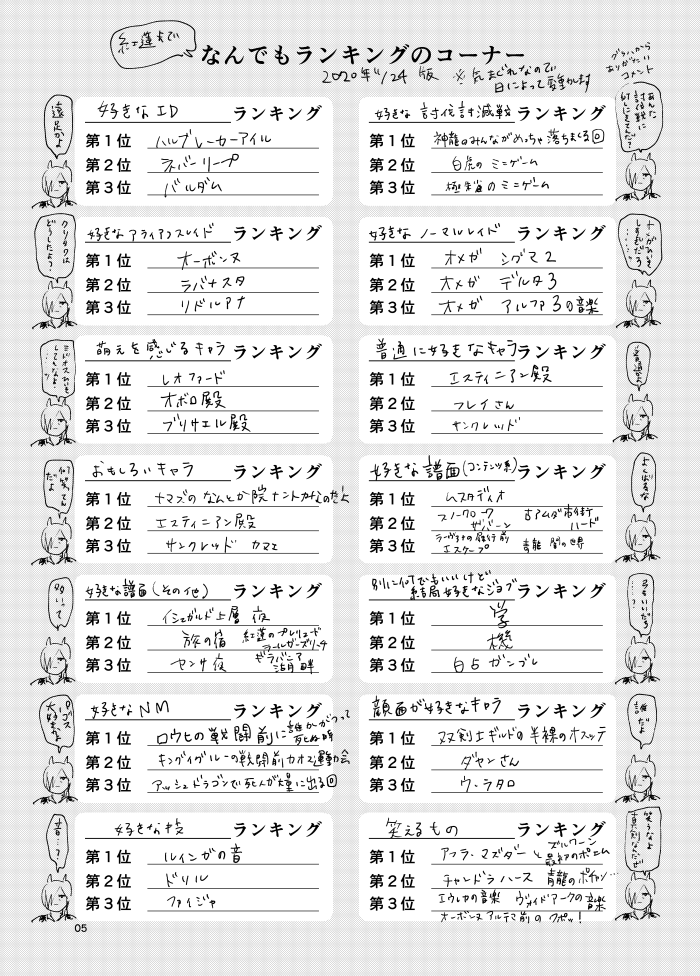 紅蓮まで
なんでもランキングのコーナー
2020年4/24 版 ※気まぐれなので
日によって変動します
グラハから
ありがたい
コメント
遠足かよ
好きなID ランキング
第1位 ハルブレーカーアイル
第2位 スバーリーブ
第3位 バルダム
あんた
討伐戦に
何しにきてんだ?
好きな 討伐討滅戦 ランキング
第1位 神龍のみんながめっちゃ落ちまくる回
第2位 白虎の ミニゲーム
第3位 極朱雀のミニゲーム
クリタワは
どうしたよ?
好きなアライアンスレイド ランキング
第1位 オーボンヌ
第2位 ラバナスタ
第3位 リドルアナ
オメガびいき
しすぎだろ
……
好きな ノーマルレイド ランキング
第1位 オメガ シグマ2
第2位 オメガ デルタ3
第3位 オメガ アルファ3の音楽
萌えを感じるキャラ ランキング
第1位 レオファード
第2位 オボロ殿
第3位 ブリサエル殿
普通かよ
普通に好きなキャラ ランキング
第1位 エスティニアン殿
第2位 フレイさん
第3位 サンクレッド
何笑ってん
だよ
おもしろいキャラ ランキング
第1位 ナマズのなんとか院ナントカかんのだよ
第2位 エスティニアン殿
第3位 サンクレッド カマエ
よくばるな
好きな譜面(コンテンツ系) ランキング
第1位 ムスタディオ
第2位 スノークローク ザバーン 古アムダ市街 ハード
第3位 ラーヴァナの履行前 エスケープ 青龍 闇の世界
多いって
好きな譜面(その他) ランキング
第1位 イシュガルド上層 夜
第2位 旅の宿 紅蓮のプレリュード
ラールガーズリーチ
第3位 ヤンサ夜 ギラバニア
湖畔
弓もいいだろ
…?
別に何でもいいけど
結局好きなジョブ ランキング
第1位 学
第2位 機
第3位 白占ガンブレ
パゴス
大好きかよ
好きなNM ランキング
第1位 ロウヒの戦闘前に誰かがつって
死ぬ時
第2位 キングイグルーの戦闘前カオス運動会
第3位 アッシュドラゴンで死人が大量に出る回
誰だよ
顔面が好きなキャラ ランキング
第1位 双剣士ギルドの半裸のオスッテ
第2位 ダヤンさん
第3位 ウ・ラタロ
音…?
好きな技 ランキング
第1位 ルインガの音
第2位 ドリル
第3位 ファイジャ
笑うなよ
真剣なんだぜ
笑えるもの ランキング
第1位 アフラ・マズダー と ズルワーン
最初のポエム
第2位 チャンドラハース 青龍のポカン…
第3位 エウレカの音楽 ヴォイドアークの音楽
オーボンヌアルテマ前の クポッ!
05